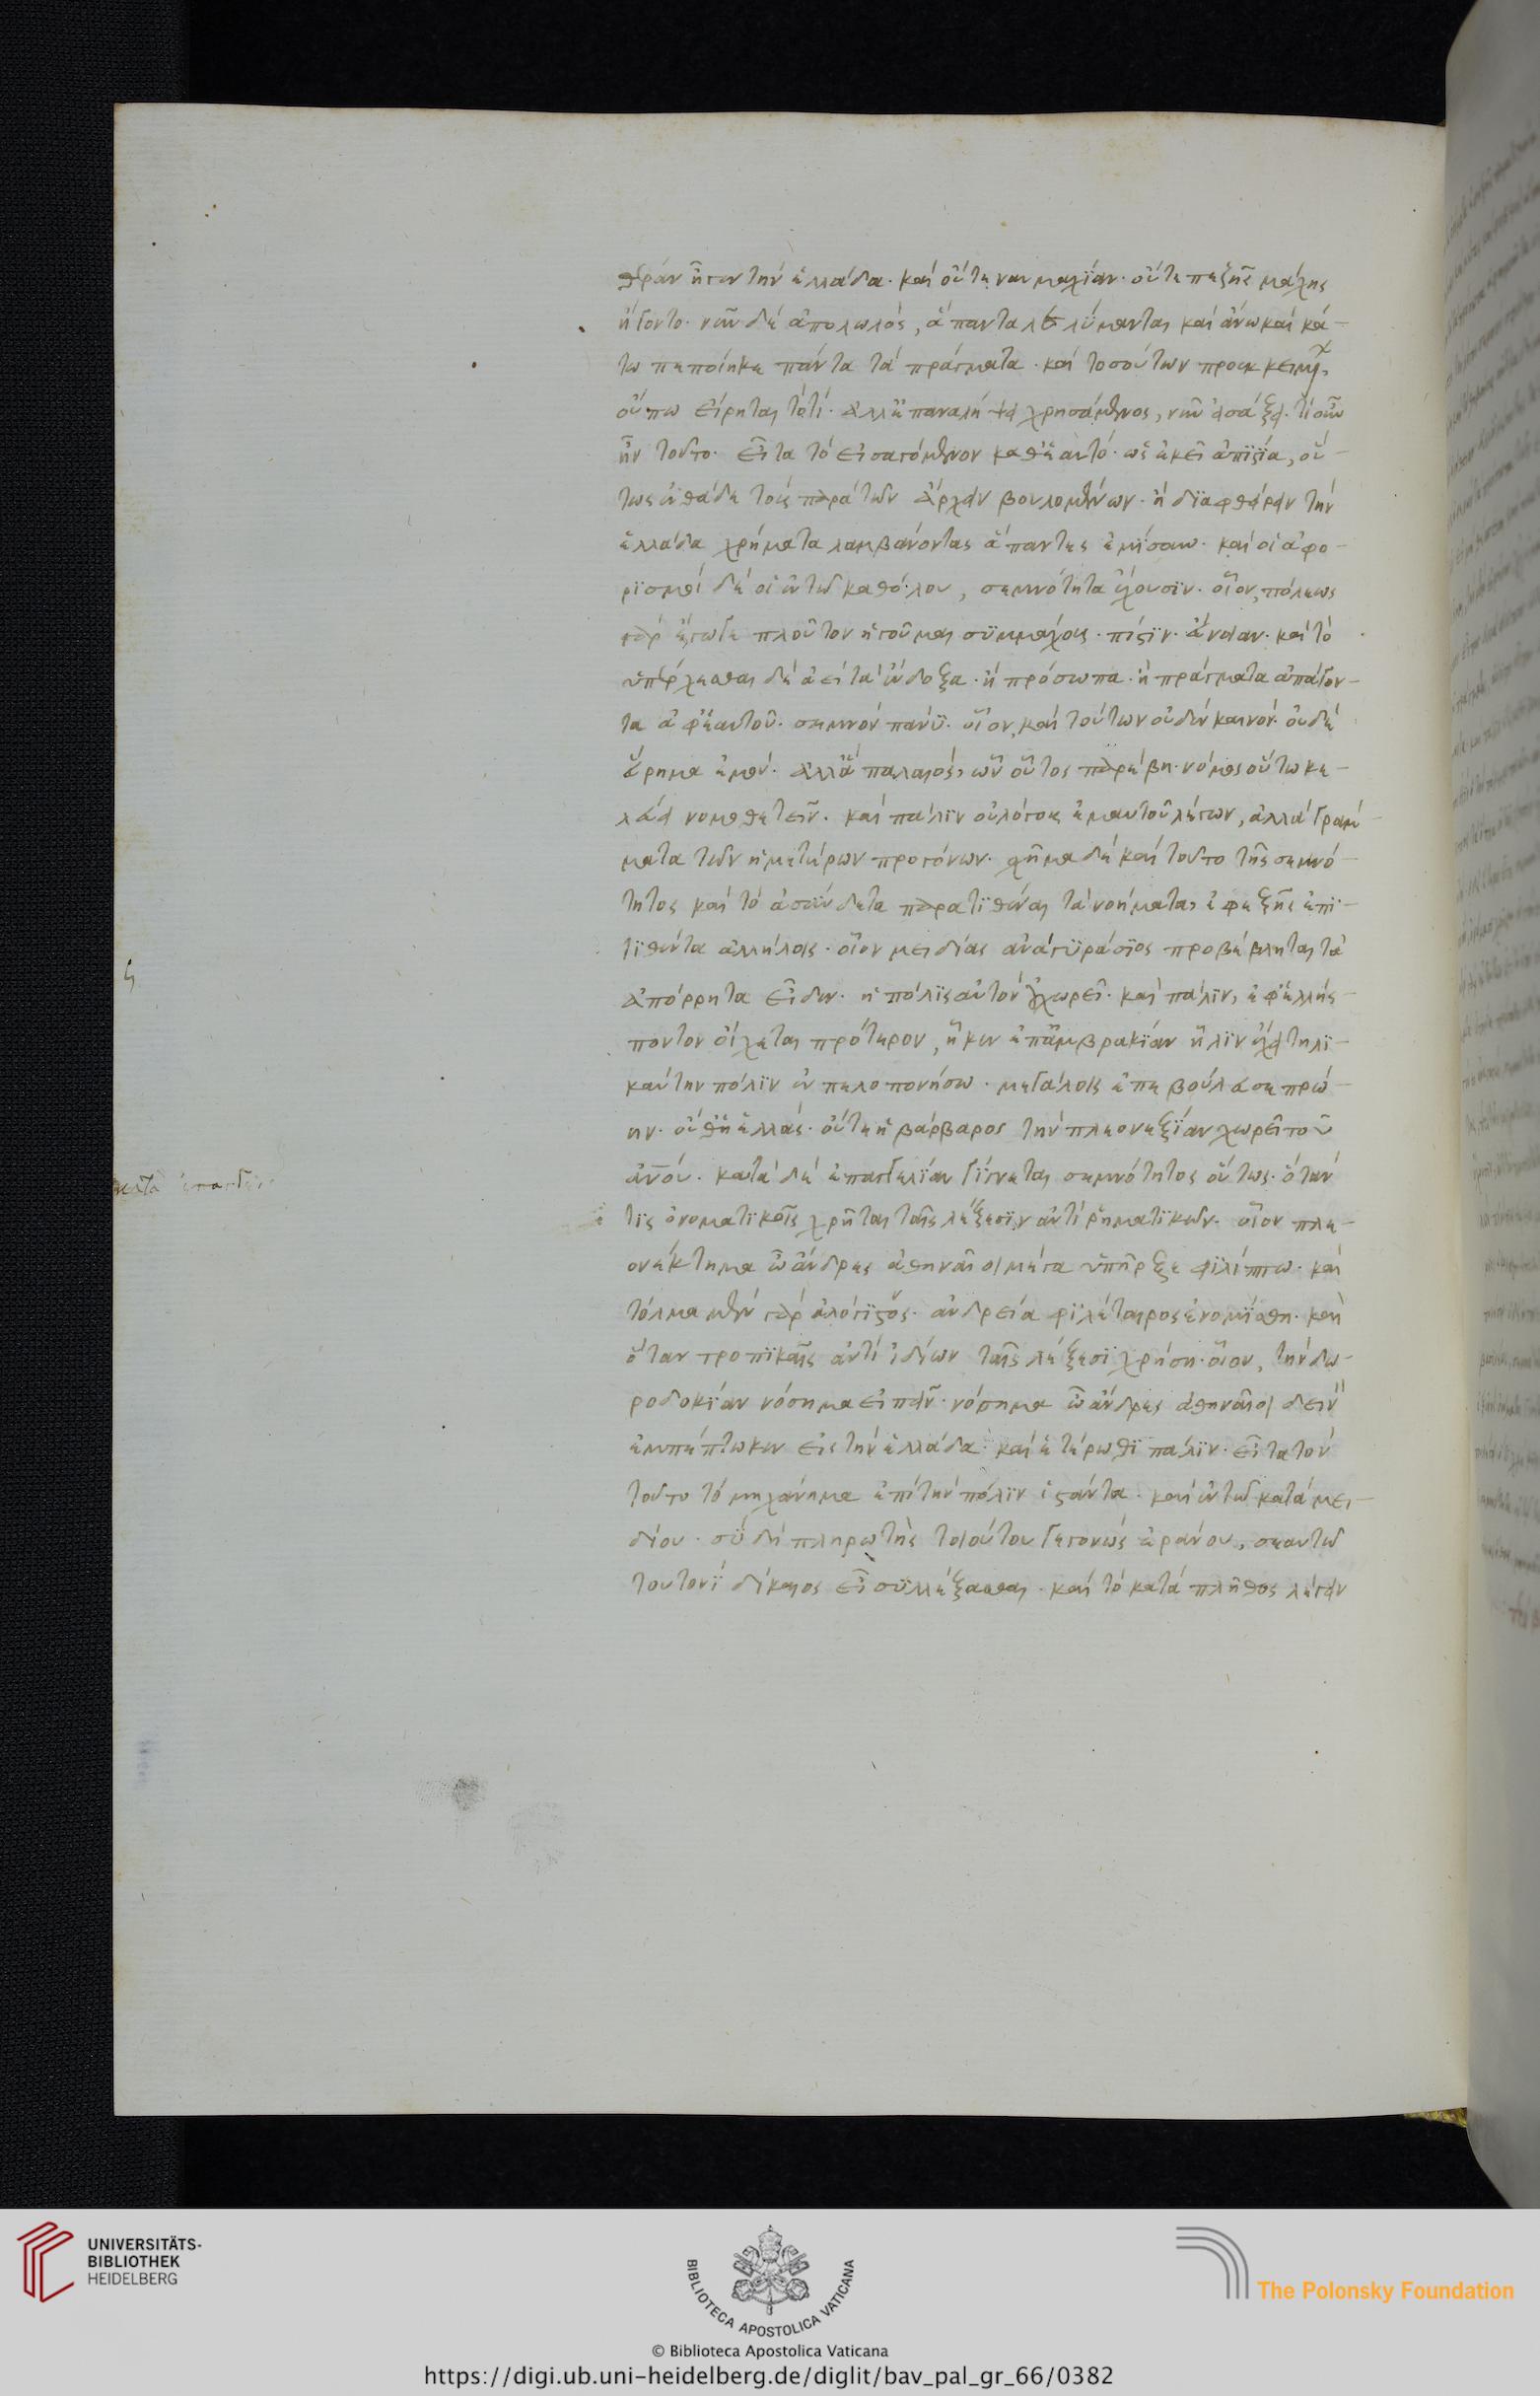 θεῖραν ἦγεν τὴν ἑλλάδα. καὶ οὔτε ναυμαχίαν. οὔτε πεζῆς μάχης
ἡττᾶτο. νῦν δὲ ἀπολωλὸς, ἅπαντα λελύμανται καὶ ἄνω καὶ κά-
τω πεποίηκε πάντα τὰ πράγματα. καὶ τοσούτων προεκκειμένων,
οὔπω εἴρηται τὸ τί. ἀλλ' ἐπαναλήψει χρησάμενος, νῦν εἰσάξει. τί οὖν
ἦν τοῦτο. εἶτα τὸ εἰσαγόμενον καθ' ἑαυτό. ὡς ἐκεῖ ἀπιστία, οὕ-
τως ἐνθάδε τοὺς παρὰ τῶν ἄρχειν βουλομένων. ἢ διαφθείρειν τὴν
ἑλλάδα χρήματα λαμβάνοντας ἅπαντες ἐμίσουν. καὶ οἱ ἀφο-
ρισμοὶ δὲ οἱ ἐν τῶ καθόλου, σεμνότητα ἔχουσιν. οἷον, πόλεως
γὰρ ἔγωγε πλοῦτον ἡγοῦμαι συμμάχους. πίστιν. εὔνοιαν. καὶ τὸ
ὑπέρχεσθαι δὲ ἀεὶ τὰ ἔνδοξα. ἢ πρόσωπα. ἢ πράγματα ἀπάγον-
τα ἀφ' ἑαυτοῦ. σεμνὸν πάνυ. οἷον, καὶ τούτων οὐδὲν καινὸν. οὐδὲ
εὕρημα ἐμόν. ἀλλ' ὁ παλαιὸς, ὧν οὗτος παρέβη. νόμος οὕτω κε-
λεύει νομοθετεῖν. καὶ πάλιν οὐ λόγους ἐμαυτοῦ λέγων, ἀλλὰ γράμ-
ματα τῶν ἡμετέρων προγόνων. σχῆμα δὲ καὶ τοῦτο τῆς σεμνό-
τητος καὶ τὸ ἀσύνδετα παρατιθέναι τὰ νοήματα, ἐφεξῆς ἐπι-
τιθέντα ἀλλήλοις. οἷον μειδίας ἀναγυράσιος προβέβληται τὰ
ἀπόρρητα εἶδεν. ἡ πόλις αὐτὸν οὐ χωρεῖ. καὶ πάλιν, ἐφ' ἑλλήσ-
ποντον οἴχεται πρότερον, ἧκεν ἐπ' ἀμβρακίαν ἦλιν ἔχει τηλι-
καύτην πόλιν ἐν πελοπονήσω. μεγάροις ἐπεβούλευσε πρώ-
ην. οὔθ' ἡ ἑλλὰς. οὔτε ἡ βάρβαρος τὴν πλεονεξίαν χωρεῖ τοῦ
ἀνου. κατὰ δὲ ἐπαγγελίαν γίγνεται σεμνότητος οὕτως. ὅταν
τις ὀνοματικαῖς χρῆται ταῖς λέξεσιν ἀντὶ ῥηματικῶν. οἷον πλε-
ονέκτημα ὦ ἄνδρες ἀθηναῖοι μέγα ὑπῆρξε φιλίππω. καὶ
τόλμα μὲν γὰρ ἀλόγιστος. ἀνδρεία φιλέταιρος ἐνομίσθη. καὶ
ὅταν τροπικαῖς ἀντὶ ἰδίων ταῖς λέξεσι χρήση. οἷον, τὴν δω-
ροδοκίαν νόσημα εἰπεῖν. νόσημα ὦ ἄνδρες ἀθηναῖοι δεινὸν
ἐμπέπτωκεν εἰς τὴν ἑλλάδα. καὶ ἑτέρωθι πάλιν. εἶτα τὸν
τοῦτο τὸ μηχάνημα ἐπὶ τὴν πόλιν ἱστάντα. καὶ ἐν τῶ κατὰ μει-
δίου. σὺ δὴ πληρωτὴς τοιούτου γεγονὼς ἐράνου, σεαυτῶ
τουτονὶ δίκαιος εἶ συλλέξασθαι. καὶ τὸ κατὰ πλῆθος λέγειν
UNIVERSITÄTS-
BIBLIOTHEK
HEIDELBERG
BIBLIOTECA APOSTOLICA VATICANA
The Polonsky Foundation
© Biblioteca Apostolica Vaticana
https://digi.ub.uni-heidelberg.de/diglit/bav_pal_gr_66/0382